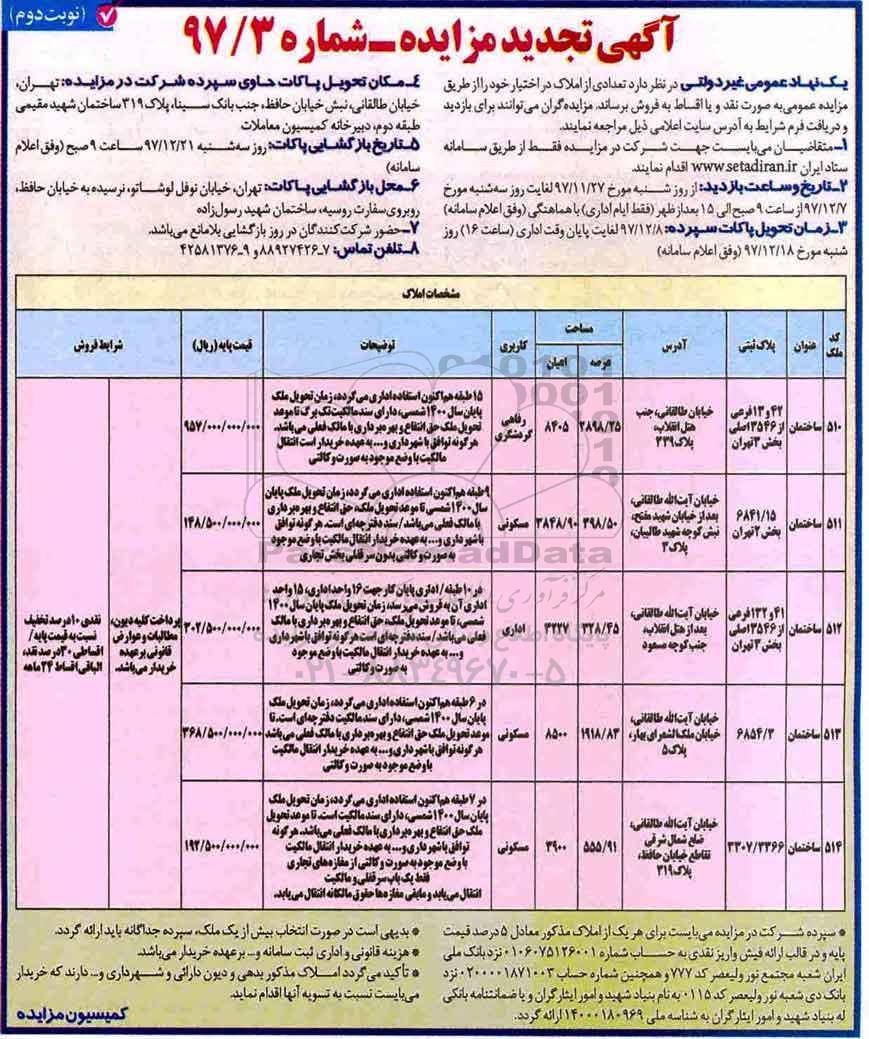 (نوبت دوم)
آگهی تجدید مزایده ـ شماره ۹۷/۳
یک نهاد عمومی غیر دولتی در نظر دارد تعدادی از املاک در اختیار خود را از طریق
مزایده عمومی به صورت نقد و یا اقساط به فروش برساند. مزایده گران می‌توانند برای بازدید
و دریافت فرم شرایط به آدرس سایت اعلامی ذیل مراجعه نمایند.
۱ـ متقاضیان می‌بایست جهت شرکت در مزایده فقط از طریق سامانه
ستاد ایران www.setadiran.ir اقدام نمایند.
۲ـ تاریخ و ساعت بازدید: از روز شنبه مورخ ۹۷/۱۱/۲۷ لغایت روز سه‌شنبه مورخ
۹۷/۱۲/۷ از ساعت ۹ صبح الی ۱۵ بعداز ظهر (فقط ایام اداری) با هماهنگی (وفق اعلام سامانه)
۳ـ زمان تحویل پاکات سپرده: ۹۷/۱۲/۸ لغایت پایان وقت اداری (ساعت ۱۶) روز
شنبه مورخ ۹۷/۱۲/۱۸ (وفق اعلام سامانه)
۴ـ مکان تحویل پاکات حاوی سپرده شرکت در مزایده: تهران،
خیابان طالقانی، نبش خیابان حافظ، جنب بانک سینا، پلاک ۳۱۹ ساختمان شهید مقیمی
طبقه دوم، دبیرخانه کمیسیون معاملات
۵ـ تاریخ بازگشایی پاکات: روز سه‌شنبه ۹۷/۱۲/۲۱ ساعت ۹ صبح (وفق اعلام
سامانه)
۶ـ محل بازگشایی پاکات: تهران، خیابان نوفل لوشاتو، نرسیده به خیابان حافظ،
روبروی سفارت روسیه، ساختمان شهید رسول‌زاده
۷ـ حضور شرکت کنندگان در روز بازگشایی بلامانع می‌باشد.
۸ـ تلفن تماس: ۷ـ۸۸۹۲۷۴۲۶ و ۹ـ۴۲۵۸۱۳۷۶
مشخصات املاک
کد ملک عنوان پلاک ثبتی آدرس مساحت عرصه اعیان کاربری توضیحات قیمت پایه (ریال) شرایط فروش
۵۱۰ ساختمان ۴۲ و ۱۳ فرعی از ۳۵۴۶ اصلی بخش ۳ تهران
خیابان طالقانی، جنب هتل انقلاب، پلاک ۳۳۹
۲۸۹۸/۲۵ ۸۴۰۵ رفاهی گردشگری
۱۵ طبقه هم اکنون استفاده اداری می گردد، زمان تحویل ملک
پایان سال ۱۴۰۰ شمسی، دارای سند مالکیت تک برگ تا موعد
تحویل ملک حق انتفاع و بهره برداری با مالک فعلی می باشد.
هر گونه توافق با شهرداری و... به عهده خریدار است انتقال
مالکیت با وضع موجود به صورت وکالتی
۹۵۷/۰۰۰/۰۰۰/۰۰۰
۵۱۱ ساختمان ۶۸۴۱/۱۵ بخش ۲ تهران
خیابان آیت‌الله طالقانی، بعد از خیابان شهید مفتح، نبش کوچه شهید طالبیان، پلاک ۳
۳۹۸/۵۰ ۳۸۴۸/۹۰ مسکونی
۹ طبقه هم اکنون استفاده اداری می گردد، زمان تحویل ملک پایان
سال ۱۴۰۰ شمسی تا موعد تحویل ملک، حق انتفاع و بهره برداری
با مالک فعلی می باشد / سند دفترچه ای است. هر گونه توافق
با شهرداری و... به عهده خریدار انتقال مالکیت با وضع موجود
به صورت وکالتی بدون سرقفلی بخش تجاری
۱۴۸/۵۰۰/۰۰۰/۰۰۰
۵۱۲ ساختمان ۴۱ و ۱۳۲ فرعی از ۳۵۴۶ اصلی بخش ۳ تهران
خیابان آیت‌الله طالقانی، بعد از هتل انقلاب، جنب کوچه مسعود
۳۲۸/۴۵ ۳۲۲۷ اداری
در ۱۰ طبقه / اداری پایان کار جهت ۱۶ واحد اداری، ۱۵ واحد
اداری آن به فروش می‌رسد، زمان تحویل ملک پایان سال ۱۴۰۰
شمسی، تا موعد تحویل ملک، حق انتفاع و بهره برداری با مالک
فعلی می باشد / سند دفترچه ای است هر گونه توافق با شهرداری
و... به عهده خریدار انتقال مالکیت با وضع موجود
به صورت وکالتی
۳۰۲/۵۰۰/۰۰۰/۰۰۰
۵۱۳ ساختمان ۶۸۵۴/۳
خیابان آیت‌الله طالقانی، خیابان ملک الشعرای بهار، پلاک ۵
۱۹۱۸/۸۳ ۸۵۰۰ مسکونی
در ۶ طبقه هم اکنون استفاده اداری می گردد، زمان تحویل ملک
پایان سال ۱۴۰۰ شمسی، دارای سند مالکیت دفترچه ای است. تا
موعد تحویل ملک حق انتفاع و بهره برداری با مالک فعلی می باشد
هر گونه توافق با شهرداری و... به عهده خریدار انتقال مالکیت
با وضع موجود به صورت وکالتی
۳۶۸/۵۰۰/۰۰۰/۰۰۰
۵۱۴ ساختمان ۳۳۰۷/۳۳۶۶
خیابان آیت‌الله طالقانی، ضلع شمال شرقی تقاطع خیابان حافظ، پلاک ۳۱۹
۵۵۵/۹۱ ۳۹۰۰ مسکونی
در ۷ طبقه هم اکنون استفاده اداری می گردد، زمان تحویل ملک
پایان سال ۱۴۰۰ شمسی، دارای سند مالکیت است. تا موعد تحویل
ملک حق انتفاع و بهره برداری با مالک فعلی می باشد. هر گونه
توافق با شهرداری و... به عهده خریدار انتقال مالکیت
با وضع موجود به صورت وکالتی از مغازه های تجاری
فقط یک باب سرقفلی و مالکیت
انتقال می یابد و مابقی مغازه ها حقوق مالکانه انتقال می یابد.
۱۹۲/۵۰۰/۰۰۰/۰۰۰
پرداخت کلیه دیون،
مطالبات و عوارض
قانونی بر عهده
خریدار می باشد.
نقدی ۱۰ درصد تخفیف
نسبت به قیمت پایه /
اقساطی ۳۰ درصد نقد،
الباقی اقساط ۲۴ ماهه
* سپرده شرکت در مزایده می‌بایست برای هر یک از املاک مذکور معادل ۵ درصد قیمت
پایه و در قالب ارائه فیش واریز نقدی به حساب شماره ۰۱۰۶۰۷۵۱۲۶۰۰۱ نزد بانک ملی
ایران شعبه مجتمع نور ولیعصر کد ۷۷۷ و همچنین شماره حساب ۰۲۰۰۰۰۱۸۷۱۰۰۳ نزد
بانک دی شعبه نور ولیعصر کد ۰۱۱۵ به نام بنیاد شهید و امور ایثارگران و یا ضمانتنامه بانکی
له بنیاد شهید و امور ایثارگران به شناسه ملی ۱۴۰۰۰۱۸۰۹۶۹ ارائه گردد.
* بدیهی است در صورت انتخاب بیش از یک ملک، سپرده جداگانه باید ارائه گردد.
* هزینه قانونی و اداری ثبت سامانه و... برعهده خریدار می‌باشد.
* تأکید می گردد املاک مذکور بدهی و دیون دارائی و شهرداری و... دارند که خریدار
می‌بایست نسبت به تسویه آنها اقدام نماید.
کمیسیون مزایده
۰۲۱-۸۸۳۴۹۶۷۰-۵